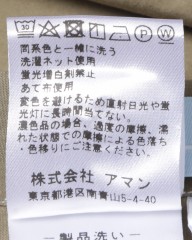 同系色と一緒に洗う
洗濯ネット使用
蛍光増白剤禁止
あて布使用
変色を避けるため直射日光や蛍
光灯に長時間当てない。
濃色品の場合、過度の摩擦、濡
れた状態での摩擦による色落ち
・色移りにご注意下さい。
株式会社 アマン
東京都港区南青山5-4-40
製品洗い